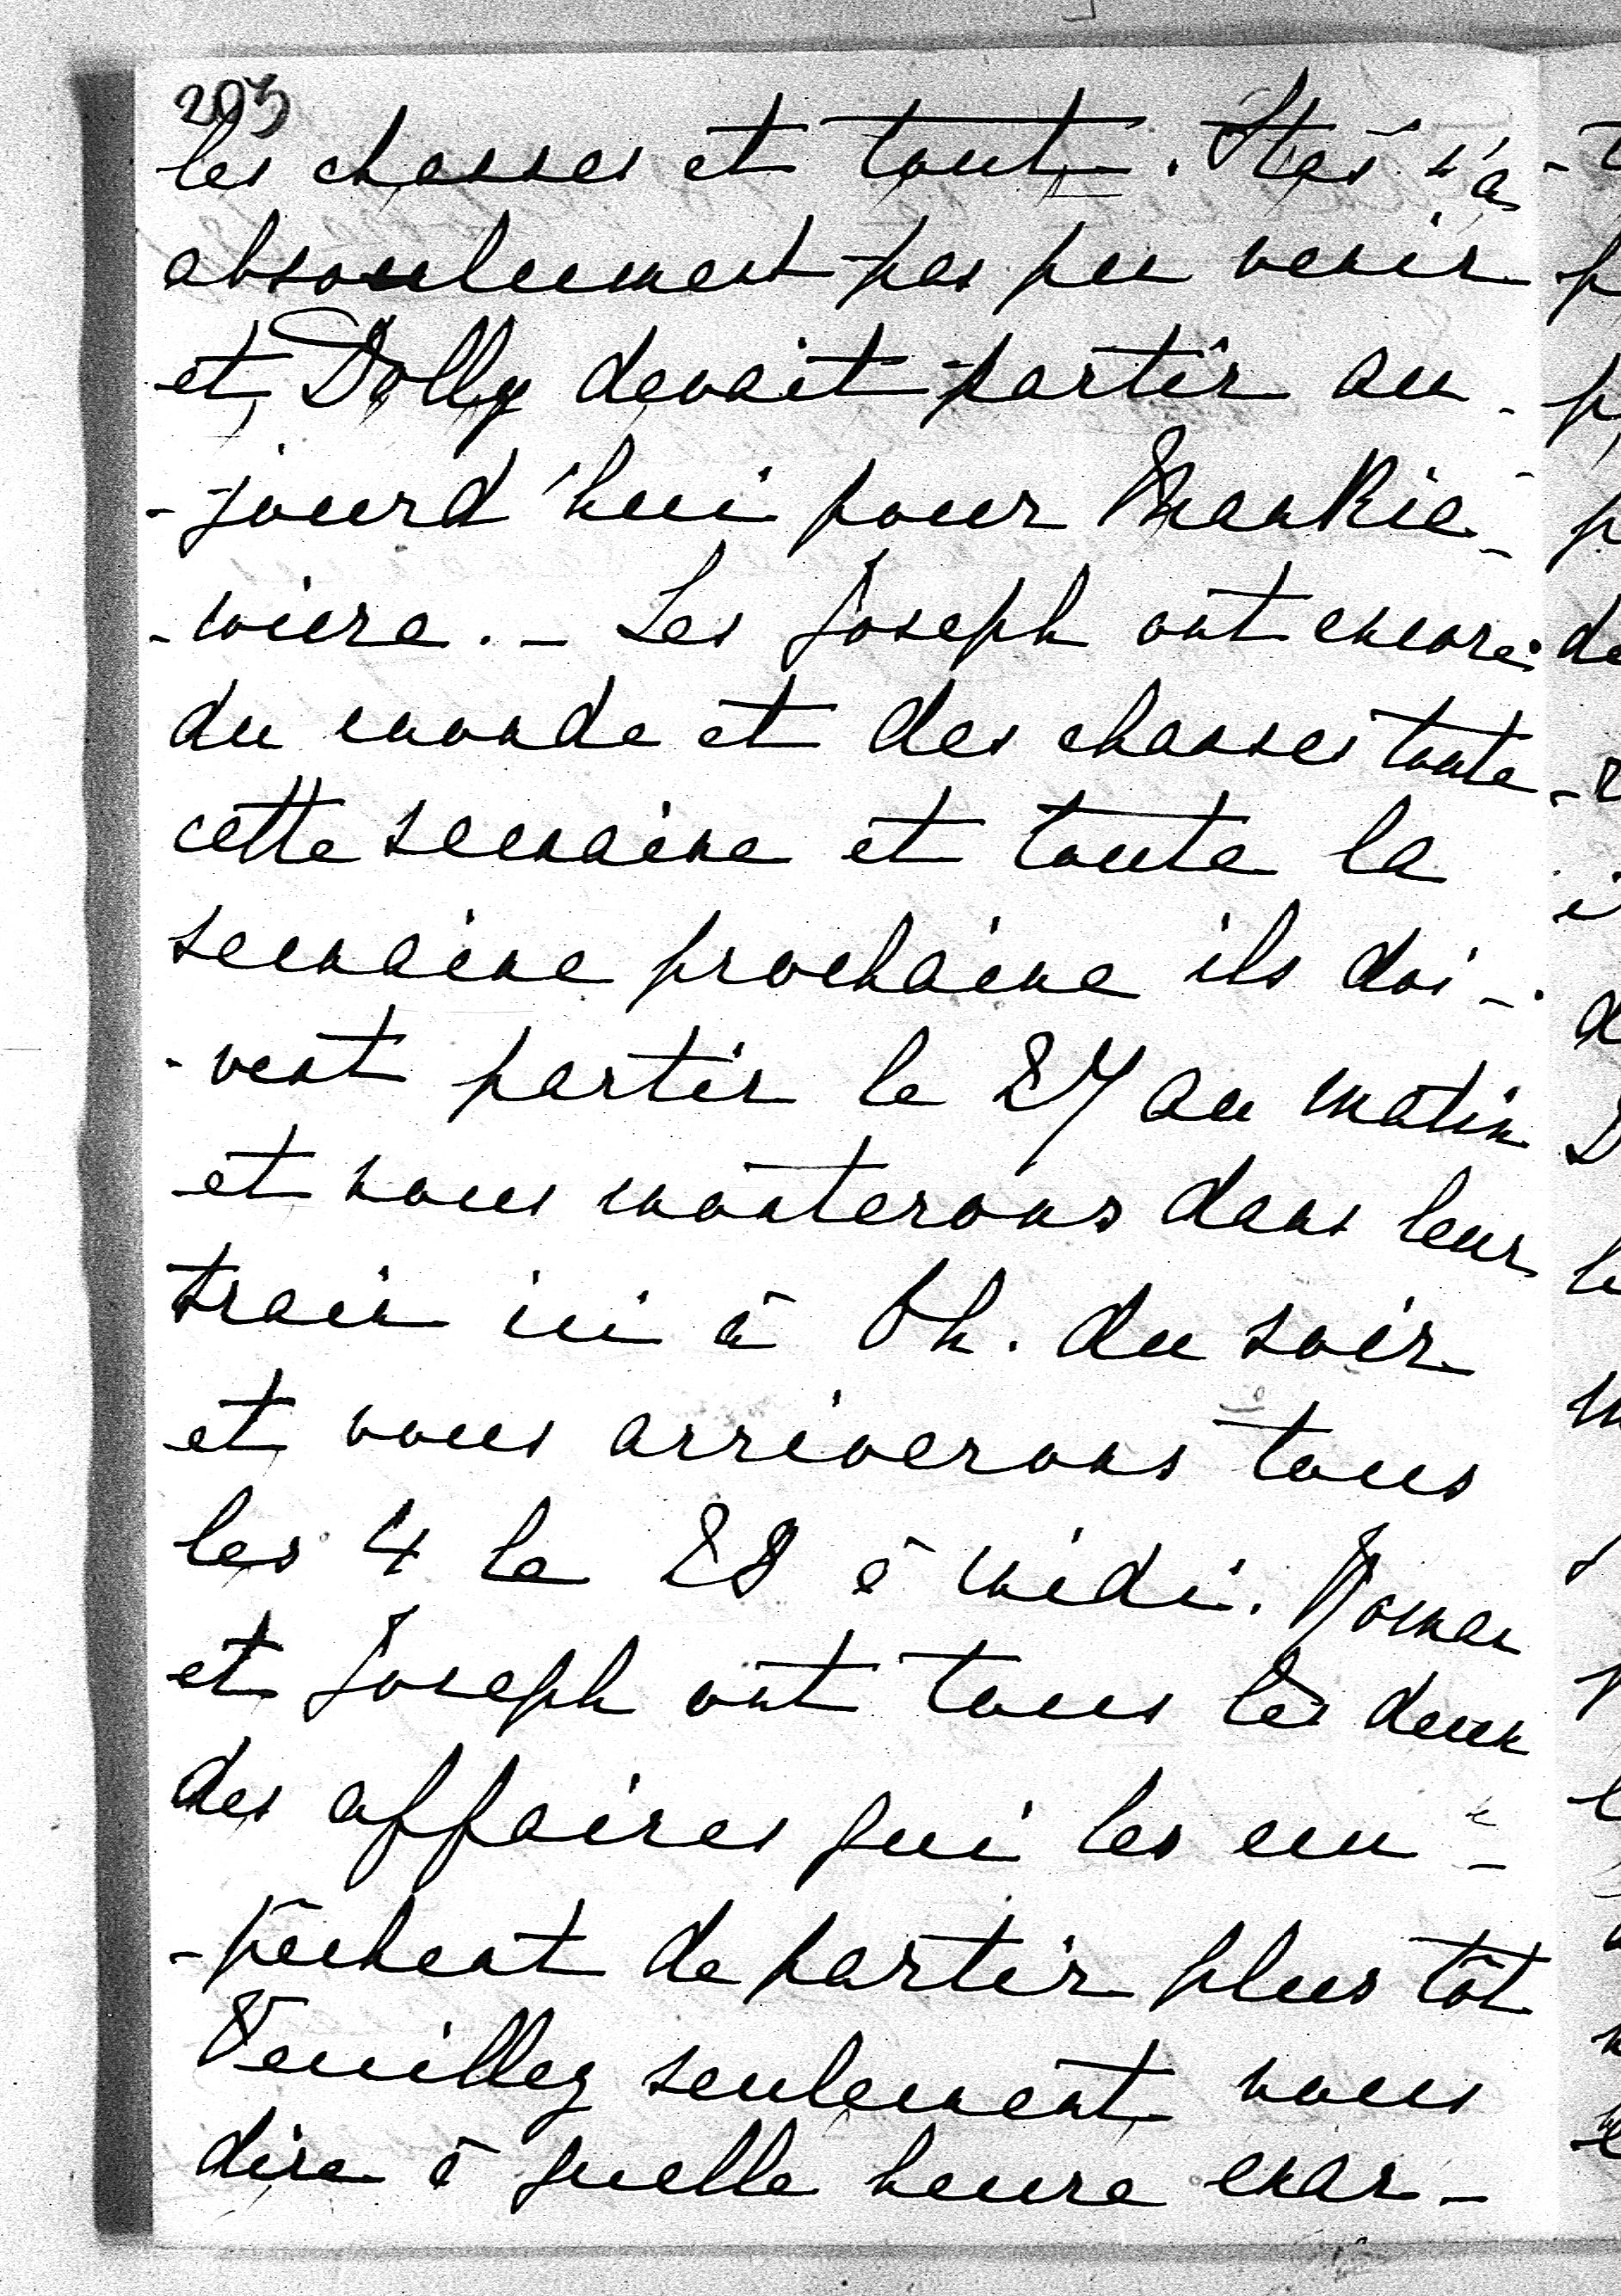 203
les chasses et tout. Stas n'a
absoulument pas pu venir
et Dolly devait partir au-
-jourd'hui pour Mankie-
-wicze. - Les Joseph ont encore
du monde et des chasses toute
cette semaine et toute la
semaine prochaine ils doi-
-vent partir le 27 au matin
et nous monterons dans leur
train ici à 6h. du soir
et nous arriverons tous
les 4 le 28 à midi. Roman
et Joseph ont tous les deux
des affaires qui les em-
-pêchent de partir plus tôt
Veuillez seulement nous
dire à quelle heure exac-